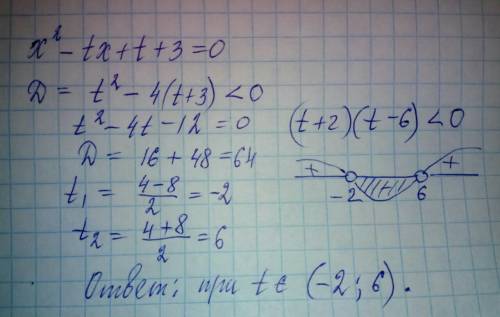 x² - tx + t + 3 = 0
D = t² - 4(t+3) < 0
t² - 4t - 12 = 0
D = 16 + 48 = 64
t₁ = (4-8)/2 = -2
t₂ = (4+8)/2 = 6
(t+2)(t-6) < 0
+ +
-2 6
Ответ: при t ∈ (-2; 6).